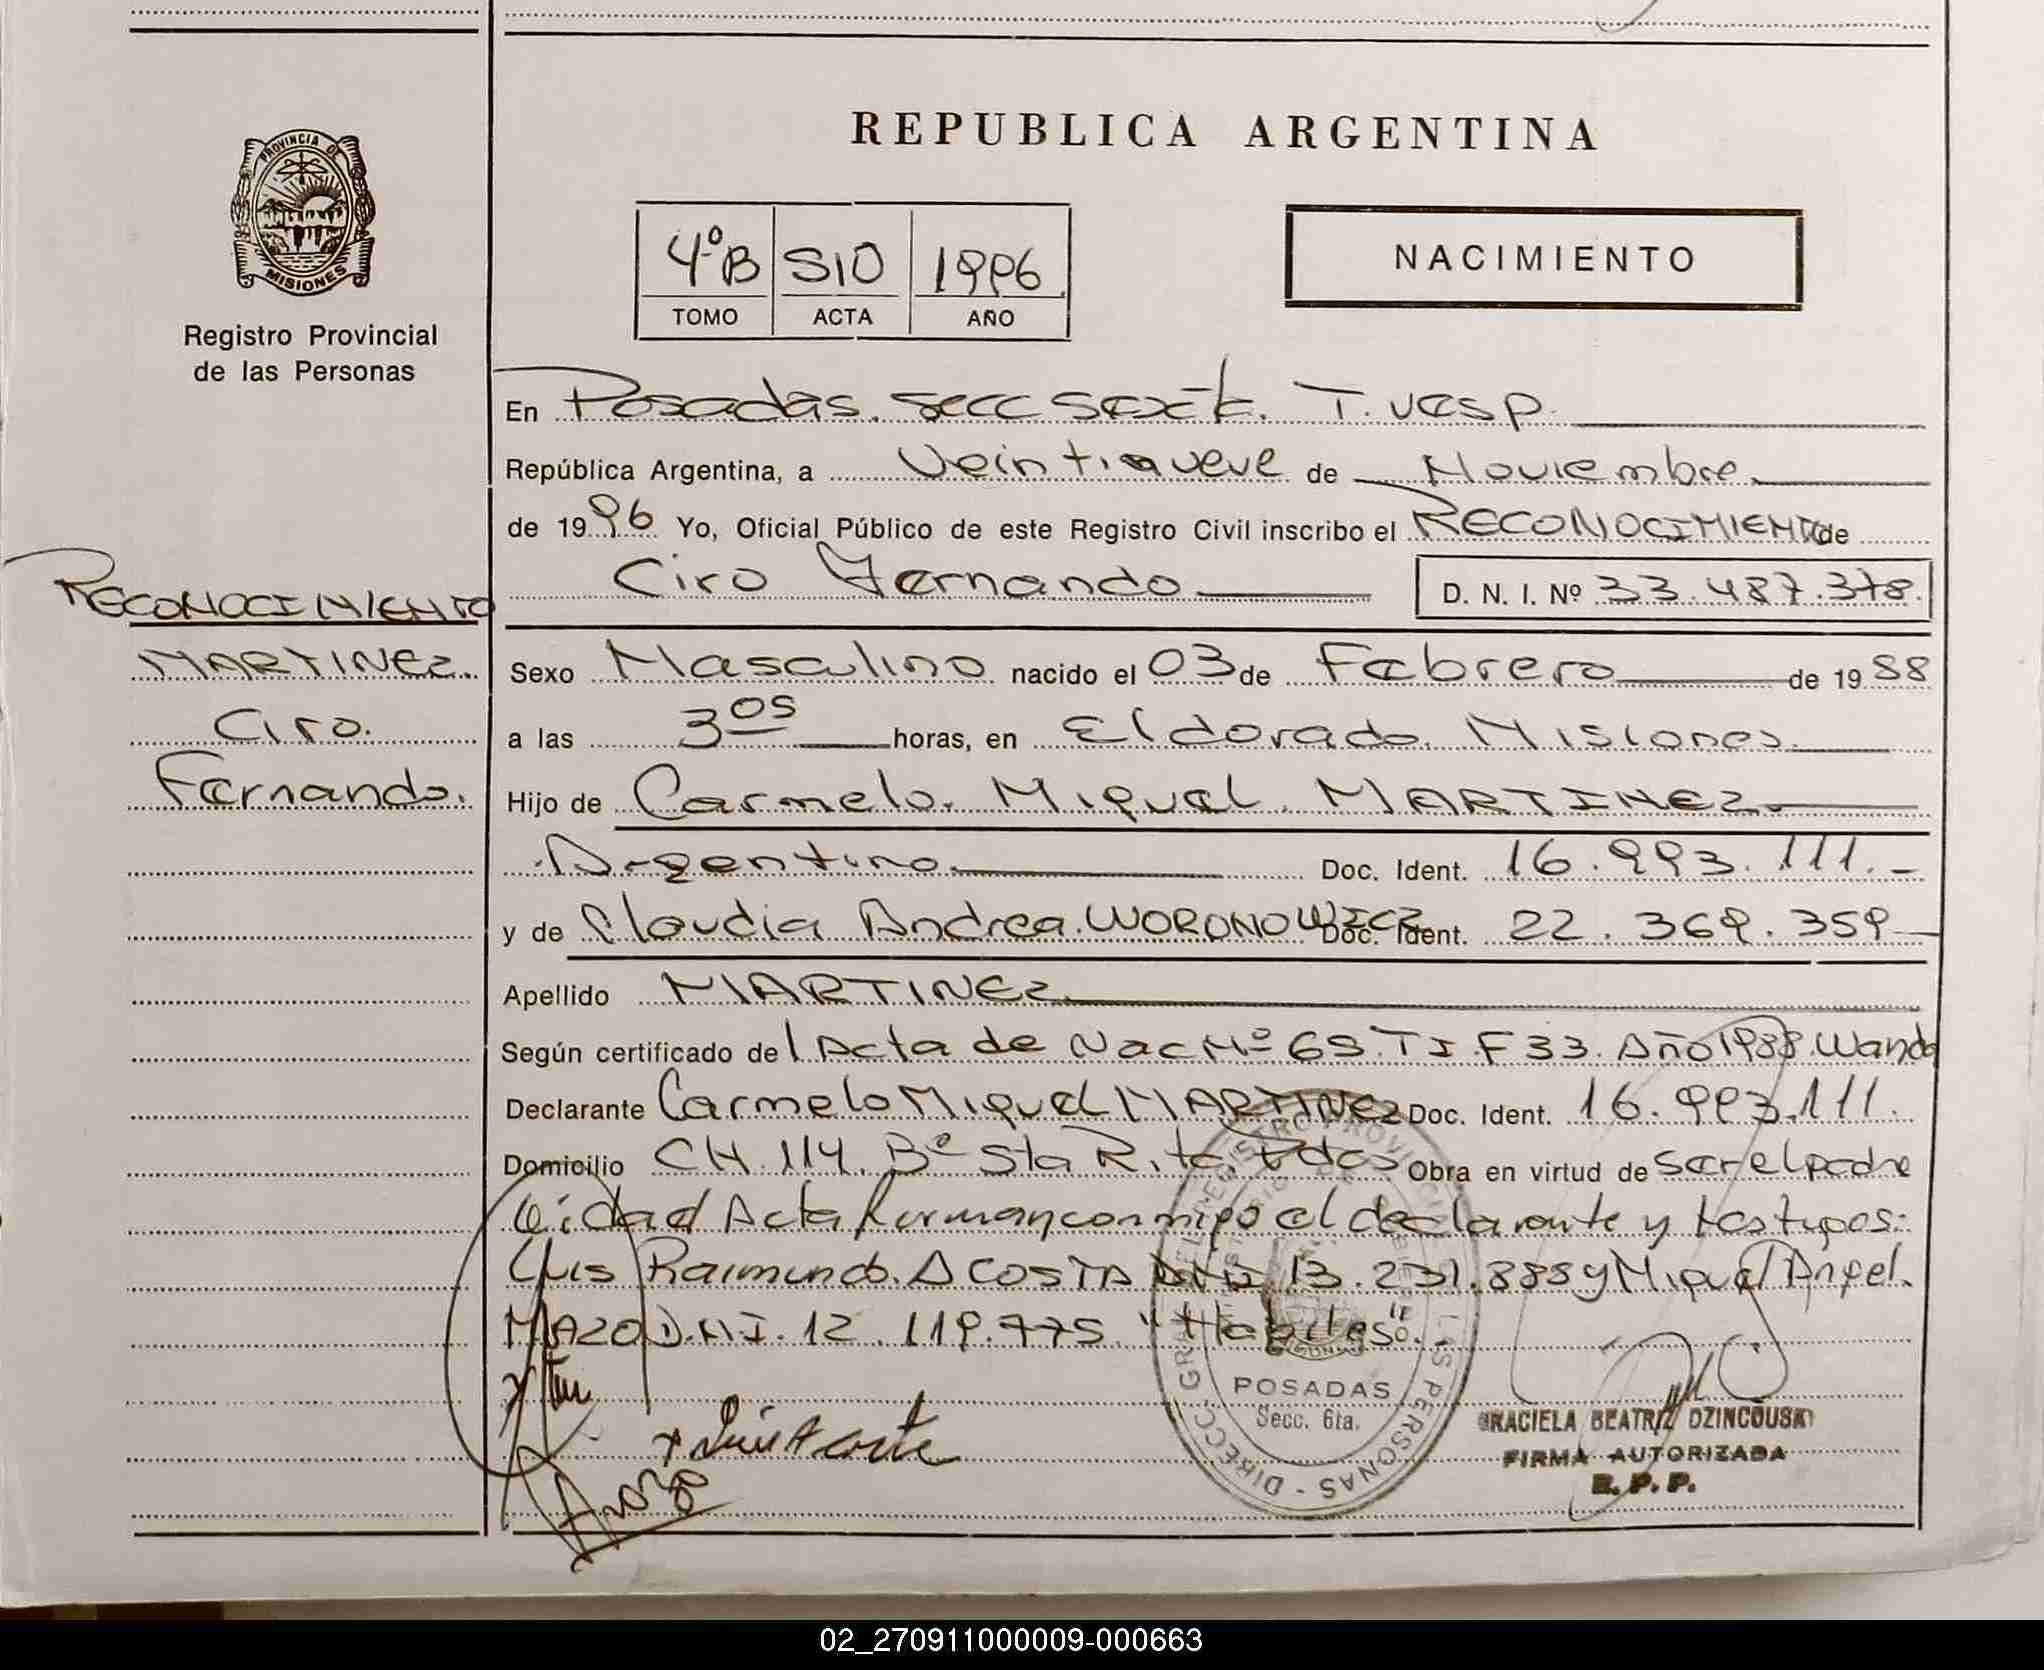 PROVINCIA DE
MISIONES
Registro Provincial
de las Personas
RECONOCIMIENTO
MARTINEZ.
Ciro.
Fernando.
REPUBLICA ARGENTINA
4ºB S10 1996
TOMO ACTA AÑO
NACIMIENTO
En Posadas. secc sexta. T. vesp.
República Argentina, a Veintinueve de Noviembre.
de 1996 Yo, Oficial Público de este Registro Civil inscribo el RECONOCIMIENTO de
Ciro Fernando D. N. I. Nº 33.487.378.
Sexo Masculino nacido el 03 de Febrero de 1988
a las 3 05 horas, en Eldorado. Misiones.
Hijo de Carmelo. Miguel. MARTINEZ.
Argentino. Doc. Ident. 16.993.111.-
y de Claudia Andrea. WORONOWICZ Doc. Ident. 22.369.359
Apellido MARTINEZ
Según certificado del Acta de Nac Nº 65. TI. F 33. Año 1988. Wanda
Declarante Carmelo Miguel MARTINEZ Doc. Ident. 16.993.111.
Domicilio CH. 114. Bº Sta Rita. Pdas Obra en virtud de ser el padre
Leida el Acta firman conmigo el declarante y testigos:
Luis Raimundo. ACOSTA DNI 13.231.888 y Miguel Angel.
MAZO D.NI. 12.119.775. "Habiles".
POSADAS
Secc. 6ta.
GRACIELA BEATRIZ DZINCOUSKI
FIRMA AUTORIZADA
R. P. P.
02_270911000009-000663